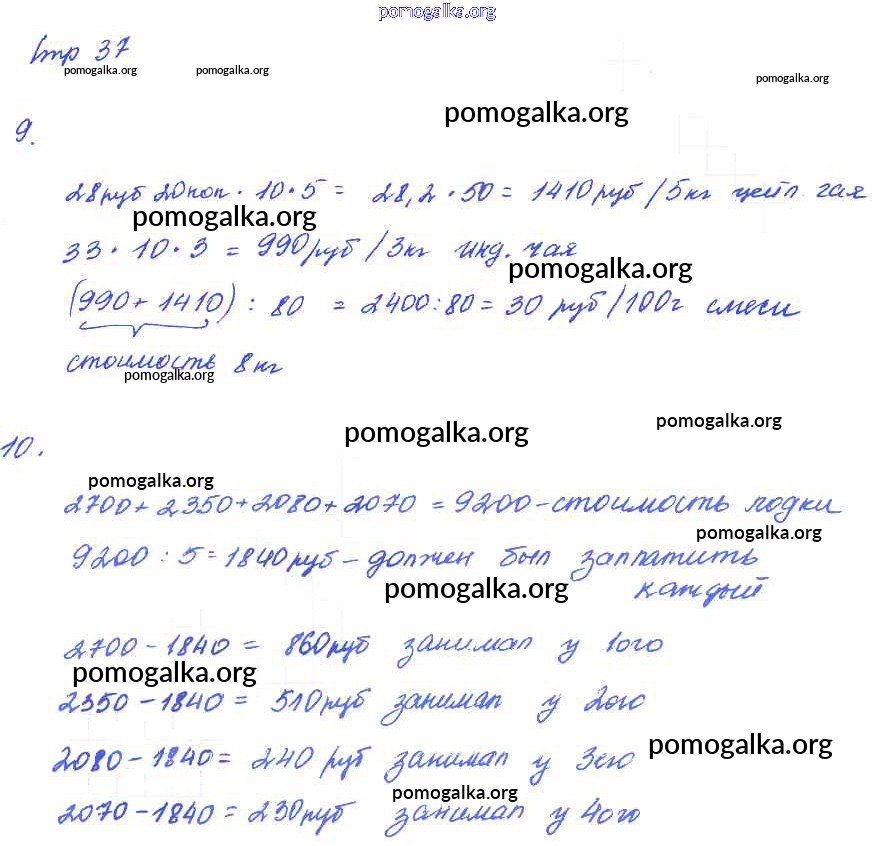 pomogalka.org
Стр 37
pomogalka.org pomogalka.org pomogalka.org
pomogalka.org
9.
28руб 20коп · 10 · 5 = 28,2 · 50 = 1410руб /5кг цейл. чая
pomogalka.org
33 · 10 · 3 = 990руб /3кг инд. чая
pomogalka.org
(990 + 1410) : 80 = 2400:80 = 30 руб/100г смеси
стоимость 8кг
pomogalka.org
pomogalka.org
pomogalka.org
10.
pomogalka.org
2700 + 2350 + 2080 + 2070 = 9200 - стоимость лодки
pomogalka.org
9200 : 5 = 1840руб - должен был заплатить
pomogalka.org каждый
2700 - 1840 = 860руб занимал у 1ого
pomogalka.org
2350 - 1840 = 510руб занимал у 2ого
pomogalka.org
2080 - 1840 = 240 руб занимал у 3его
pomogalka.org
2070 - 1840 = 230руб занимал у 4ого